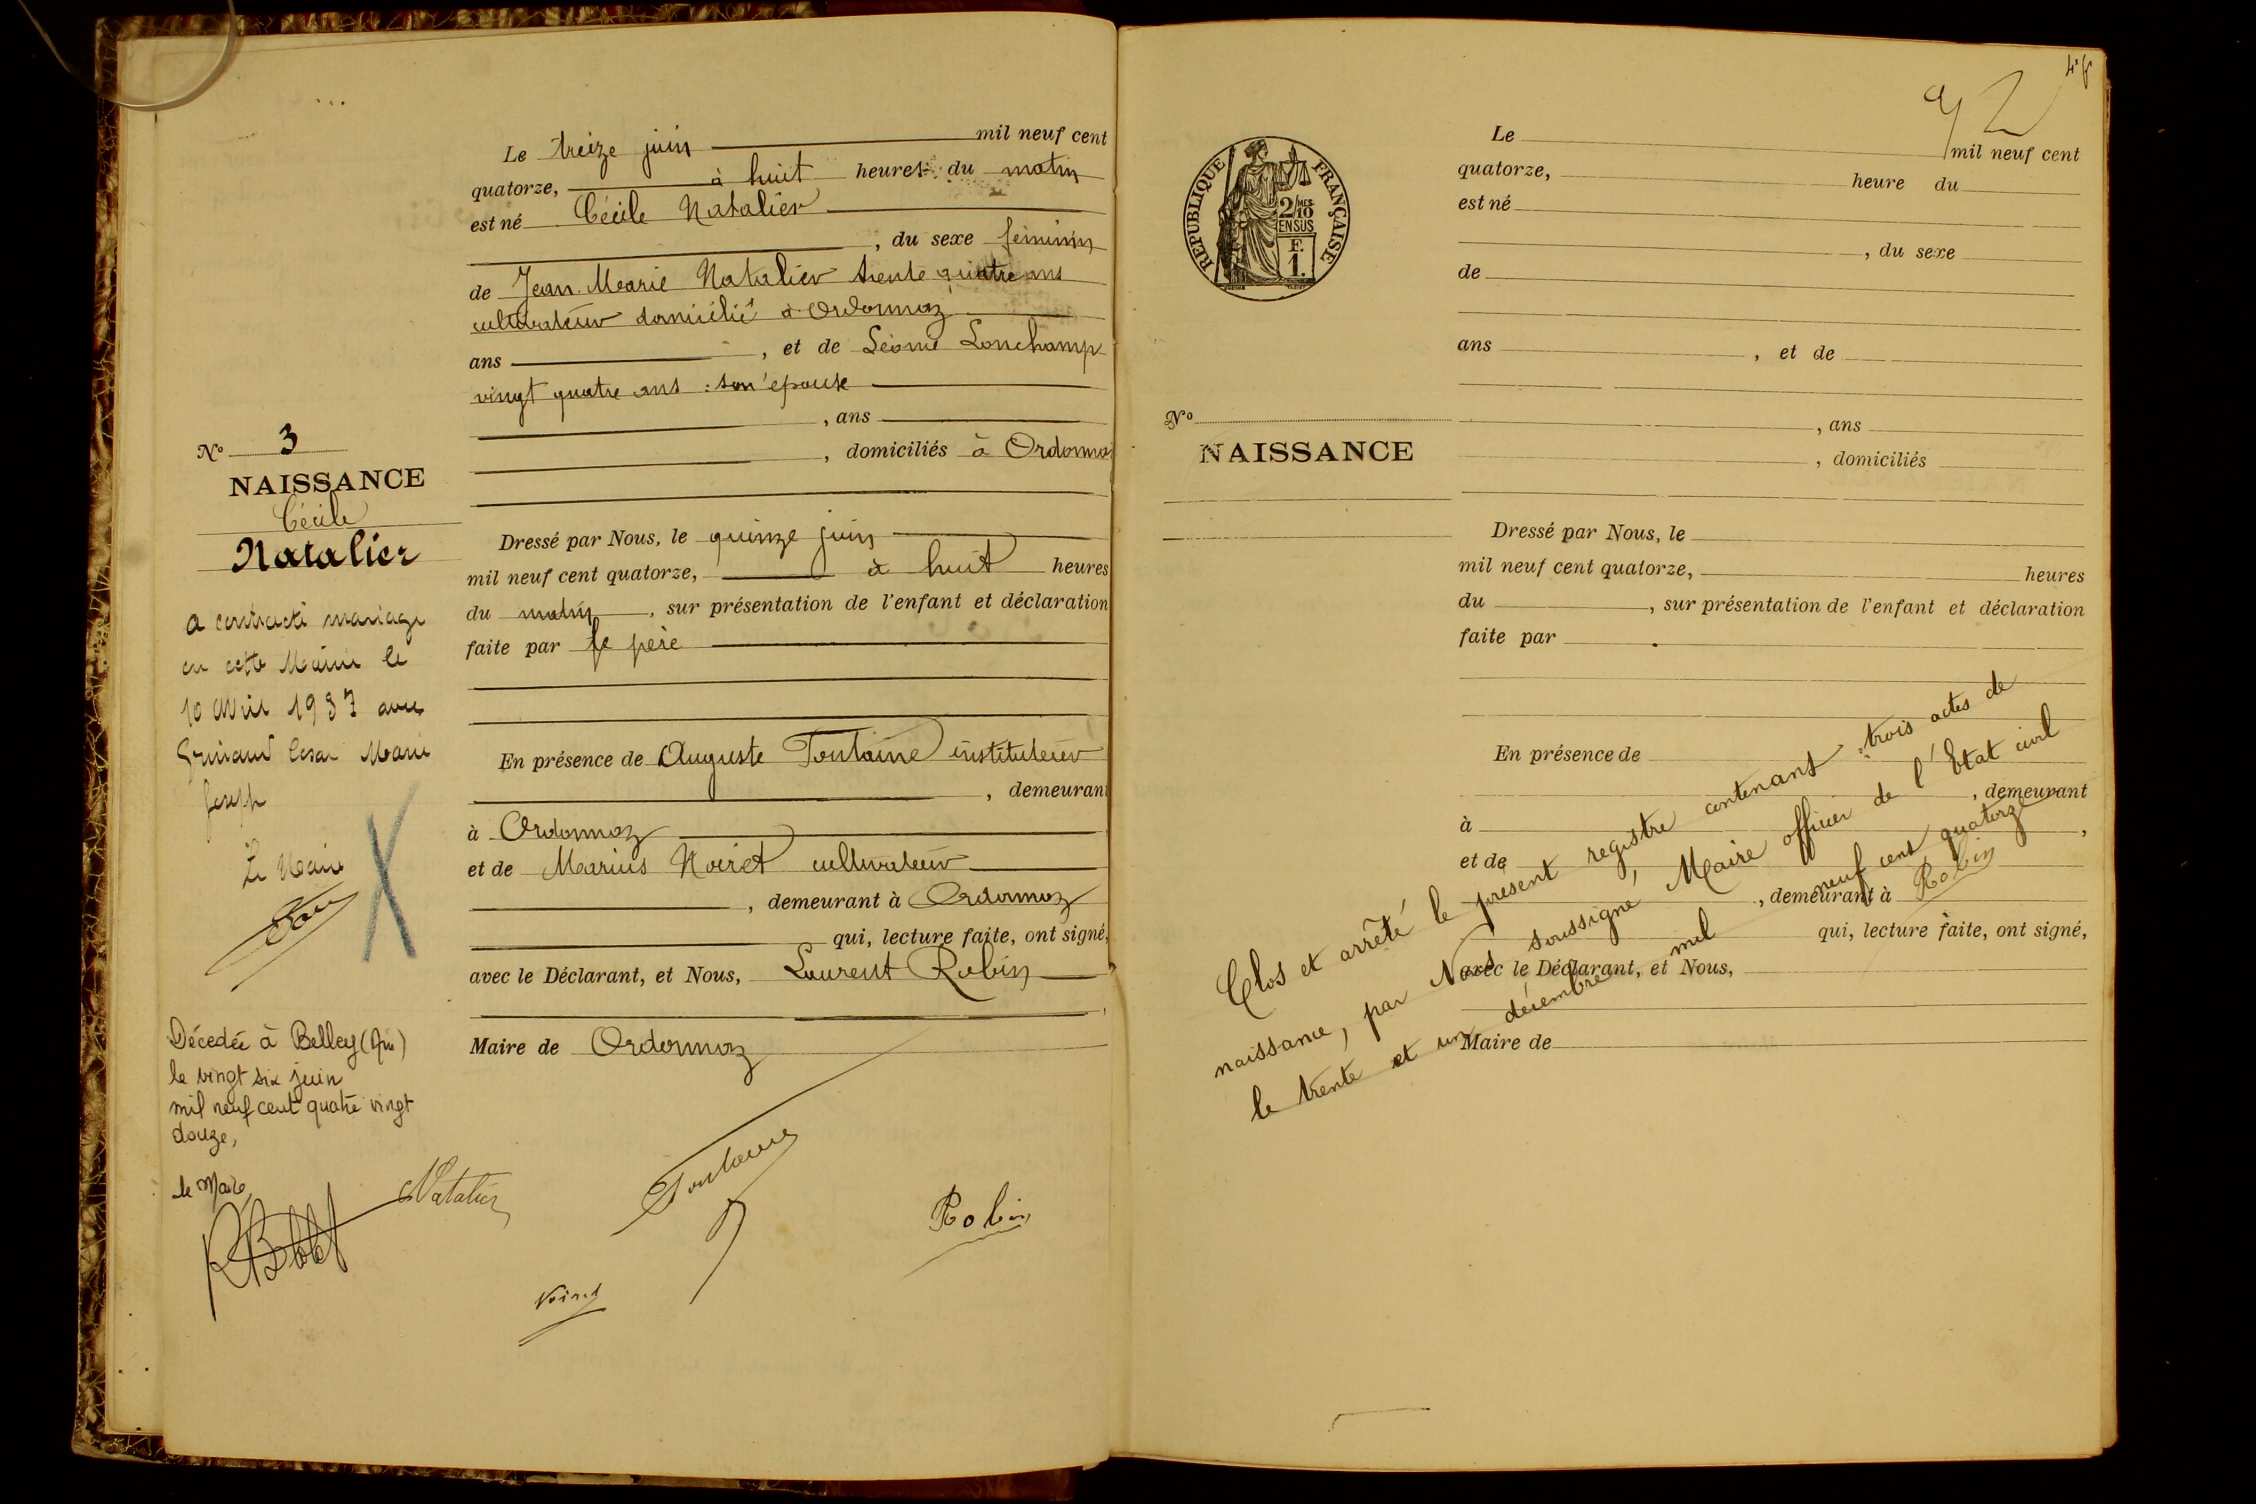 Le treize juin mil neuf cent
quatorze, à huit heures du matin
est né Cécile Natalier
, du sexe féminin
de Jean Marie Natalier trente quatre ans
cultivateur domicilié à Ordonnaz
ans , et de Léonie Lonchamp
vingt quatre ans son épouse
, ans
, domiciliés à Ordonna
Dressé par Nous, le quinze juin
mil neuf cent quatorze, à huit heures
du matin , sur présentation de l'enfant et déclaration
faite par le père
En présence de Auguste Fontaine instituteur
, demeurant
à Ordonnaz
et de Marius Noiret cultivateur
, demeurant à Ordonnaz
qui, lecture faite, ont signé,
avec le Déclarant, et Nous, Laurent Robin
Maire de Ordonnaz
No 3
NAISSANCE
Cécile
Natalier
a contracté mariage
en cette Mairie le
10 Avril 1937 avec
César Marie
Joseph
Le Maire
Décedée à Belley (Ain)
le vingt six juin
mil neuf cent quatre vingt
douze,
le Maire
Natalier
Fontaine
Noiret
Robin
RÉPUBLIQUE FRANÇAISE
2/10 MES
EN SUS
F.
1.
No
NAISSANCE
Le
mil neuf cent
quatorze, heure du
est né
, du sexe
de
ans , et de
, ans
, domiciliés
Dressé par Nous, le
mil neuf cent quatorze, heures
du , sur présentation de l'enfant et déclaration
faite par
En présence de
, demeurant
à ,
et de
, demeurant à
qui, lecture faite, ont signé,
avec le Déclarant, et Nous,
Maire de
Clos et arrêté le présent registre contenant trois actes de
naissance, par Nous soussigné, Maire officier de l'Etat civil
le trente et un décembre mil neuf cent quatorze
Robin